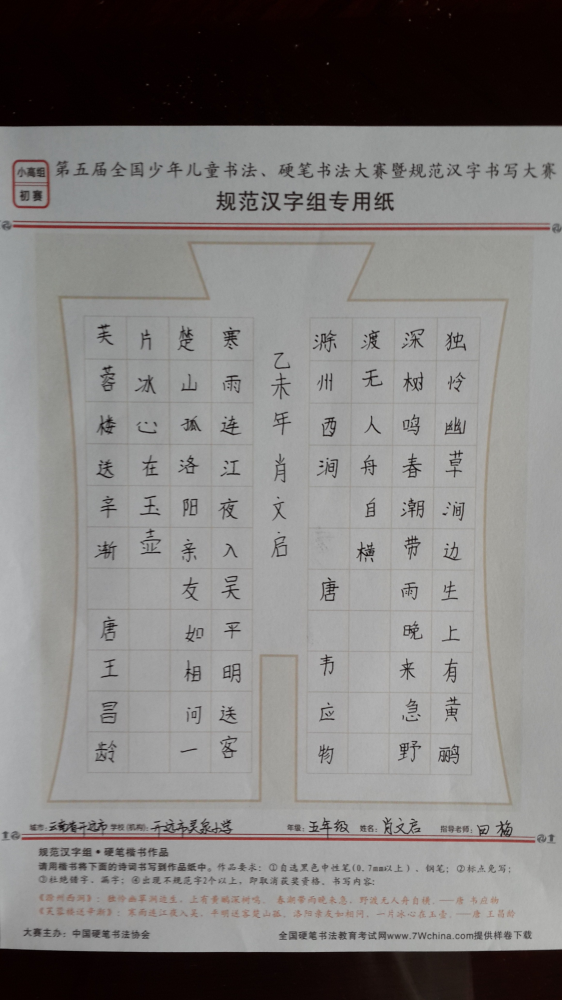 小高组
初赛
第五届全国少年儿童书法、硬笔书法大赛暨规范汉字书写大赛
规范汉字组专用纸
独怜幽草涧边生上有黄鹂
深树鸣春潮带雨晚来急野
渡无人舟自横
滁州西涧 唐 韦应物
乙未年肖文启
寒雨连江夜入吴平明送客
楚山孤洛阳亲友如相问一
片冰心在玉壶
芙蓉楼送辛渐 唐王昌龄
城市：云南省开远市 学校(机构)：开远市灵泉小学 年级：五年级 姓名：肖文启 指导老师：田梅
规范汉字组·硬笔楷书作品
请用楷书将下面的诗词书写到作品纸中。作品要求：①自选黑色中性笔(0.7mm以上)、钢笔；②标点免写；
③杜绝错字、漏字；④出现不规范字2个以上，即取消获奖资格。书写内容：
《滁州西涧》：独怜幽草涧边生，上有黄鹂深树鸣。春潮带雨晚来急，野渡无人舟自横。——唐 韦应物
《芙蓉楼送辛渐》：寒雨连江夜入吴，平明送客楚山孤。洛阳亲友如相问，一片冰心在玉壶。——唐 王昌龄
大赛主办：中国硬笔书法协会 全国硬笔书法教育考试网www.7Wchina.com提供样卷下载